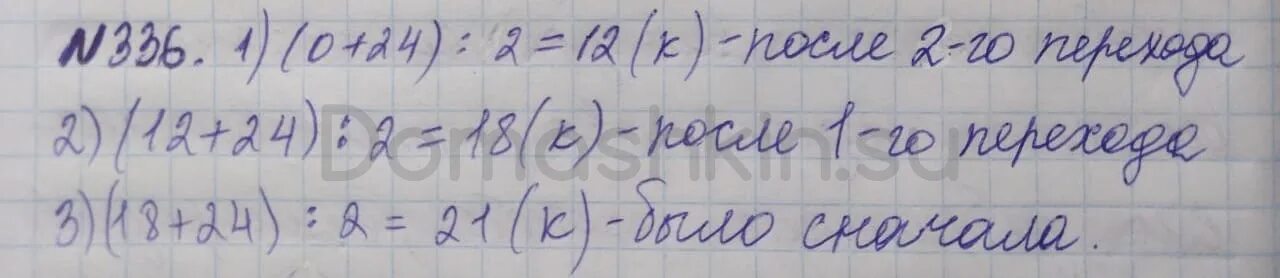 №336. 1) (0+24) : 2 = 12 (к) - после 2-го перехода
2) (12+24) : 2 = 18 (к) - после 1-го перехода
Domashkin.su
3) (18+24) : 2 = 21 (к) - было сначала.